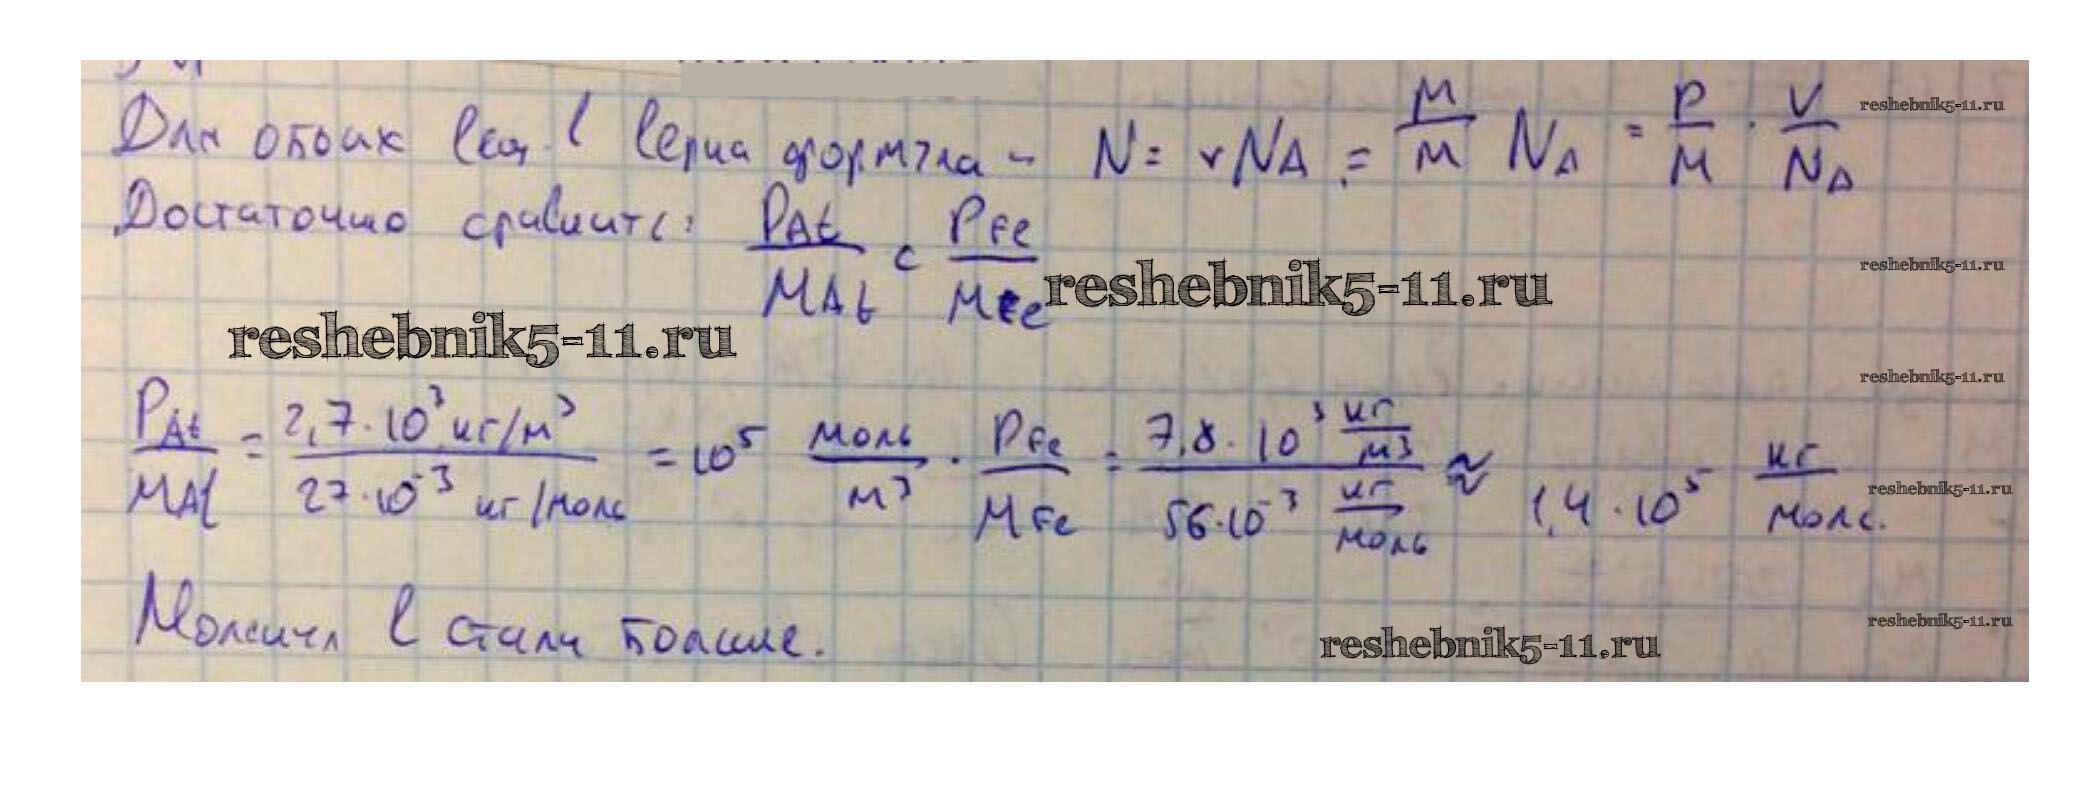 Для обоих вещ. в верна формула – N = νNA = m/M NA = ρ/M · V/NA
reshebnik5-11.ru
Достаточно сравнить: ρAl/MAl с ρFe/MFe
reshebnik5-11.ru
reshebnik5-11.ru
reshebnik5-11.ru
reshebnik5-11.ru
ρAl/MAl = 2,7·10³ кг/м³ / 27·10⁻³ кг/моль = 10⁵ моль/м³ · ρFe/MFe = 7,8·10³ кг/м³ / 56·10⁻³ кг/моль ≈ 1,4·10⁵ кг/моль.
reshebnik5-11.ru
Молекул в стали больше.
reshebnik5-11.ru
reshebnik5-11.ru